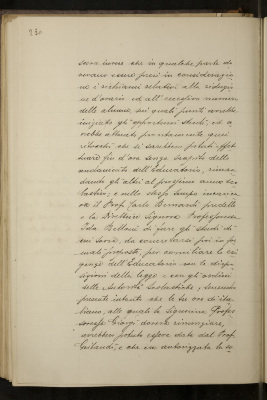 230
servazione che in qualche parte do-
vevano essere presi in considerazio-
ne i richiami relativi alla riduzio-
ne d'orario ed all'eccessivo numero
delle alunne, sui quali punti avrebbe
iniziato gli opportuni studi, ed a-
vrebbe attuato prontamente quei
ritocchi che si sarebbero potuti effet-
tuare fin d'ora senza
andamento dell'Educatorio, riman-
dando gli altri al prossimo anno sco-
lastico, e nello stesso tempo incarica-
va il Prof. Carlo Bernardi predetto
e la Direttrice Signora Professoressa
Ida Belloni di fare gli studi di
un orario, da concretarsi poi in for-
male proposta, per conciliare le esi-
genze dell'Educatorio con le dispo-
sizioni della legge e con gli ordini
delle Autorità Scolastiche, tenendo
presente intanto che le tre ore di ita-
liano, alle quali la Signorina Profes-
soressa Giorgi doveva rinunziare,
avrebbero potuto essere date dal Prof.
e che era autorizzata la